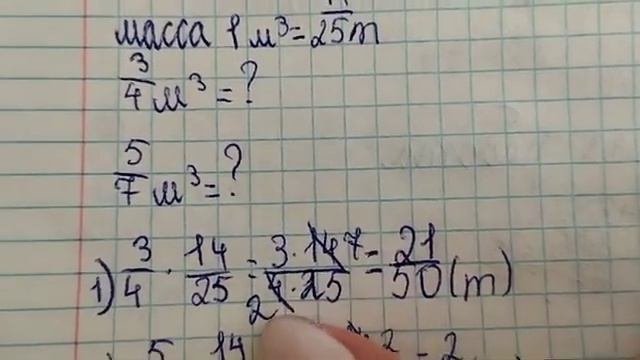 масса 1 м³ = /25 т
3/4 м³ = ?
5/7 м³ = ?
1) 3/4 · 14/25 = 3·14 7/2 4·25 = 21/50 (т)
5 14 2 = 2